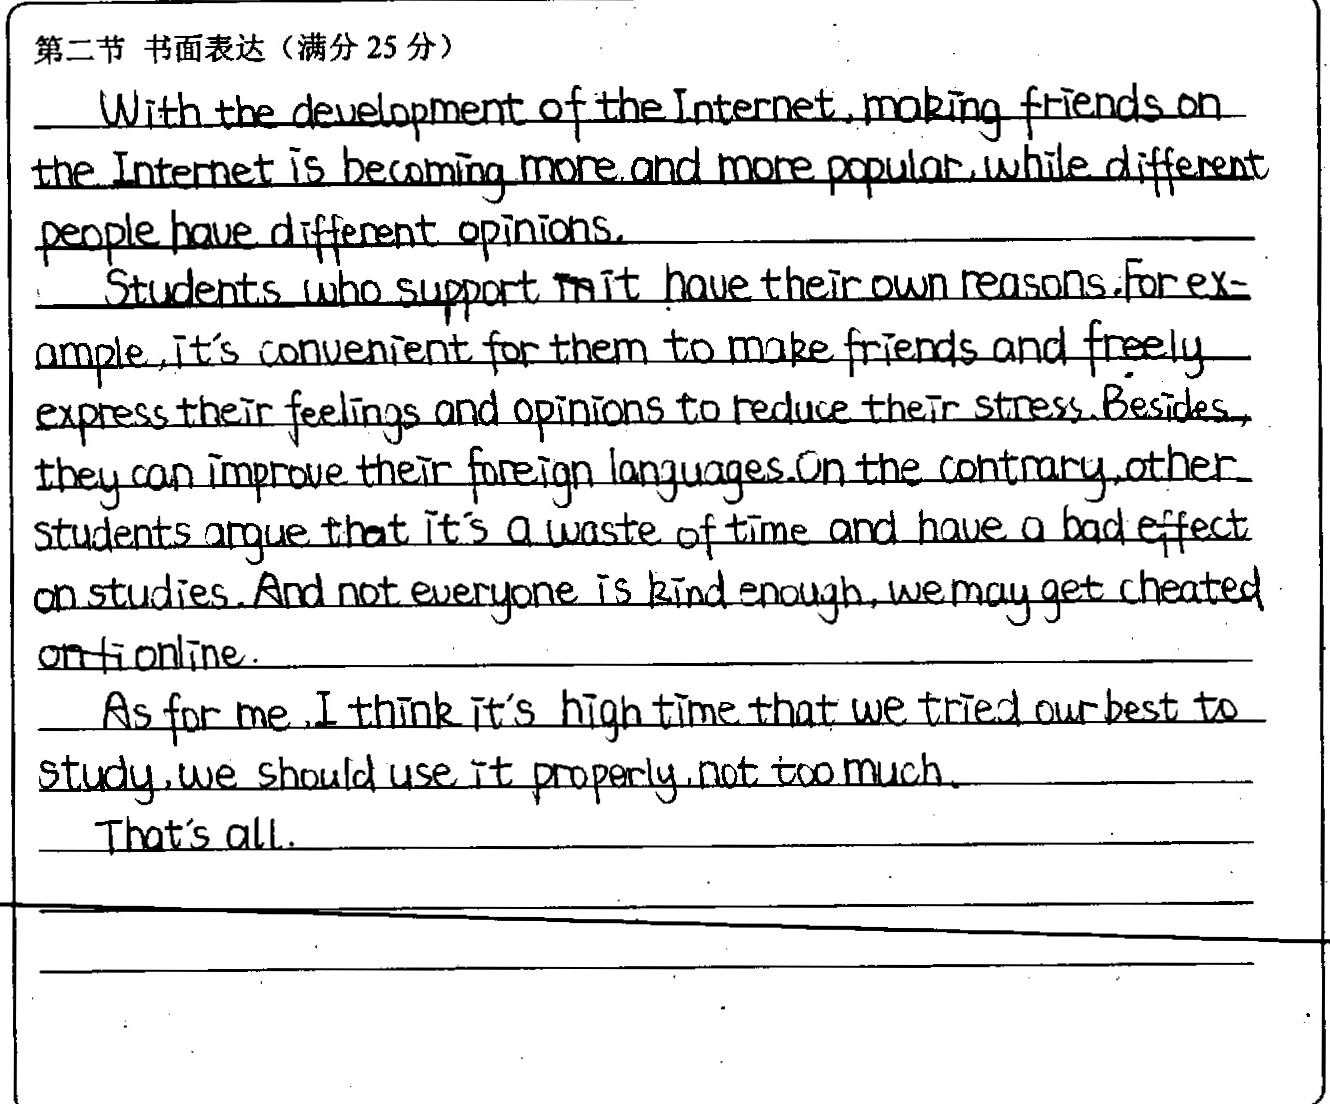 第二节 书面表达（满分 25 分）
With the development of the Internet, making friends on
the Internet is becoming more and more popular, while different
people have different opinions.
Students who support it have their own reasons. For ex-
ample, it's convenient for them to make friends and freely
express their feelings and opinions to reduce their stress. Besides,
they can improve their foreign languages. On the contrary, other
students argue that it's a waste of time and have a bad effect
on studies. And not everyone is kind enough, we may get cheated
online.
As for me, I think it's high time that we tried our best to
study, we should use it properly, not too much.
That's all.